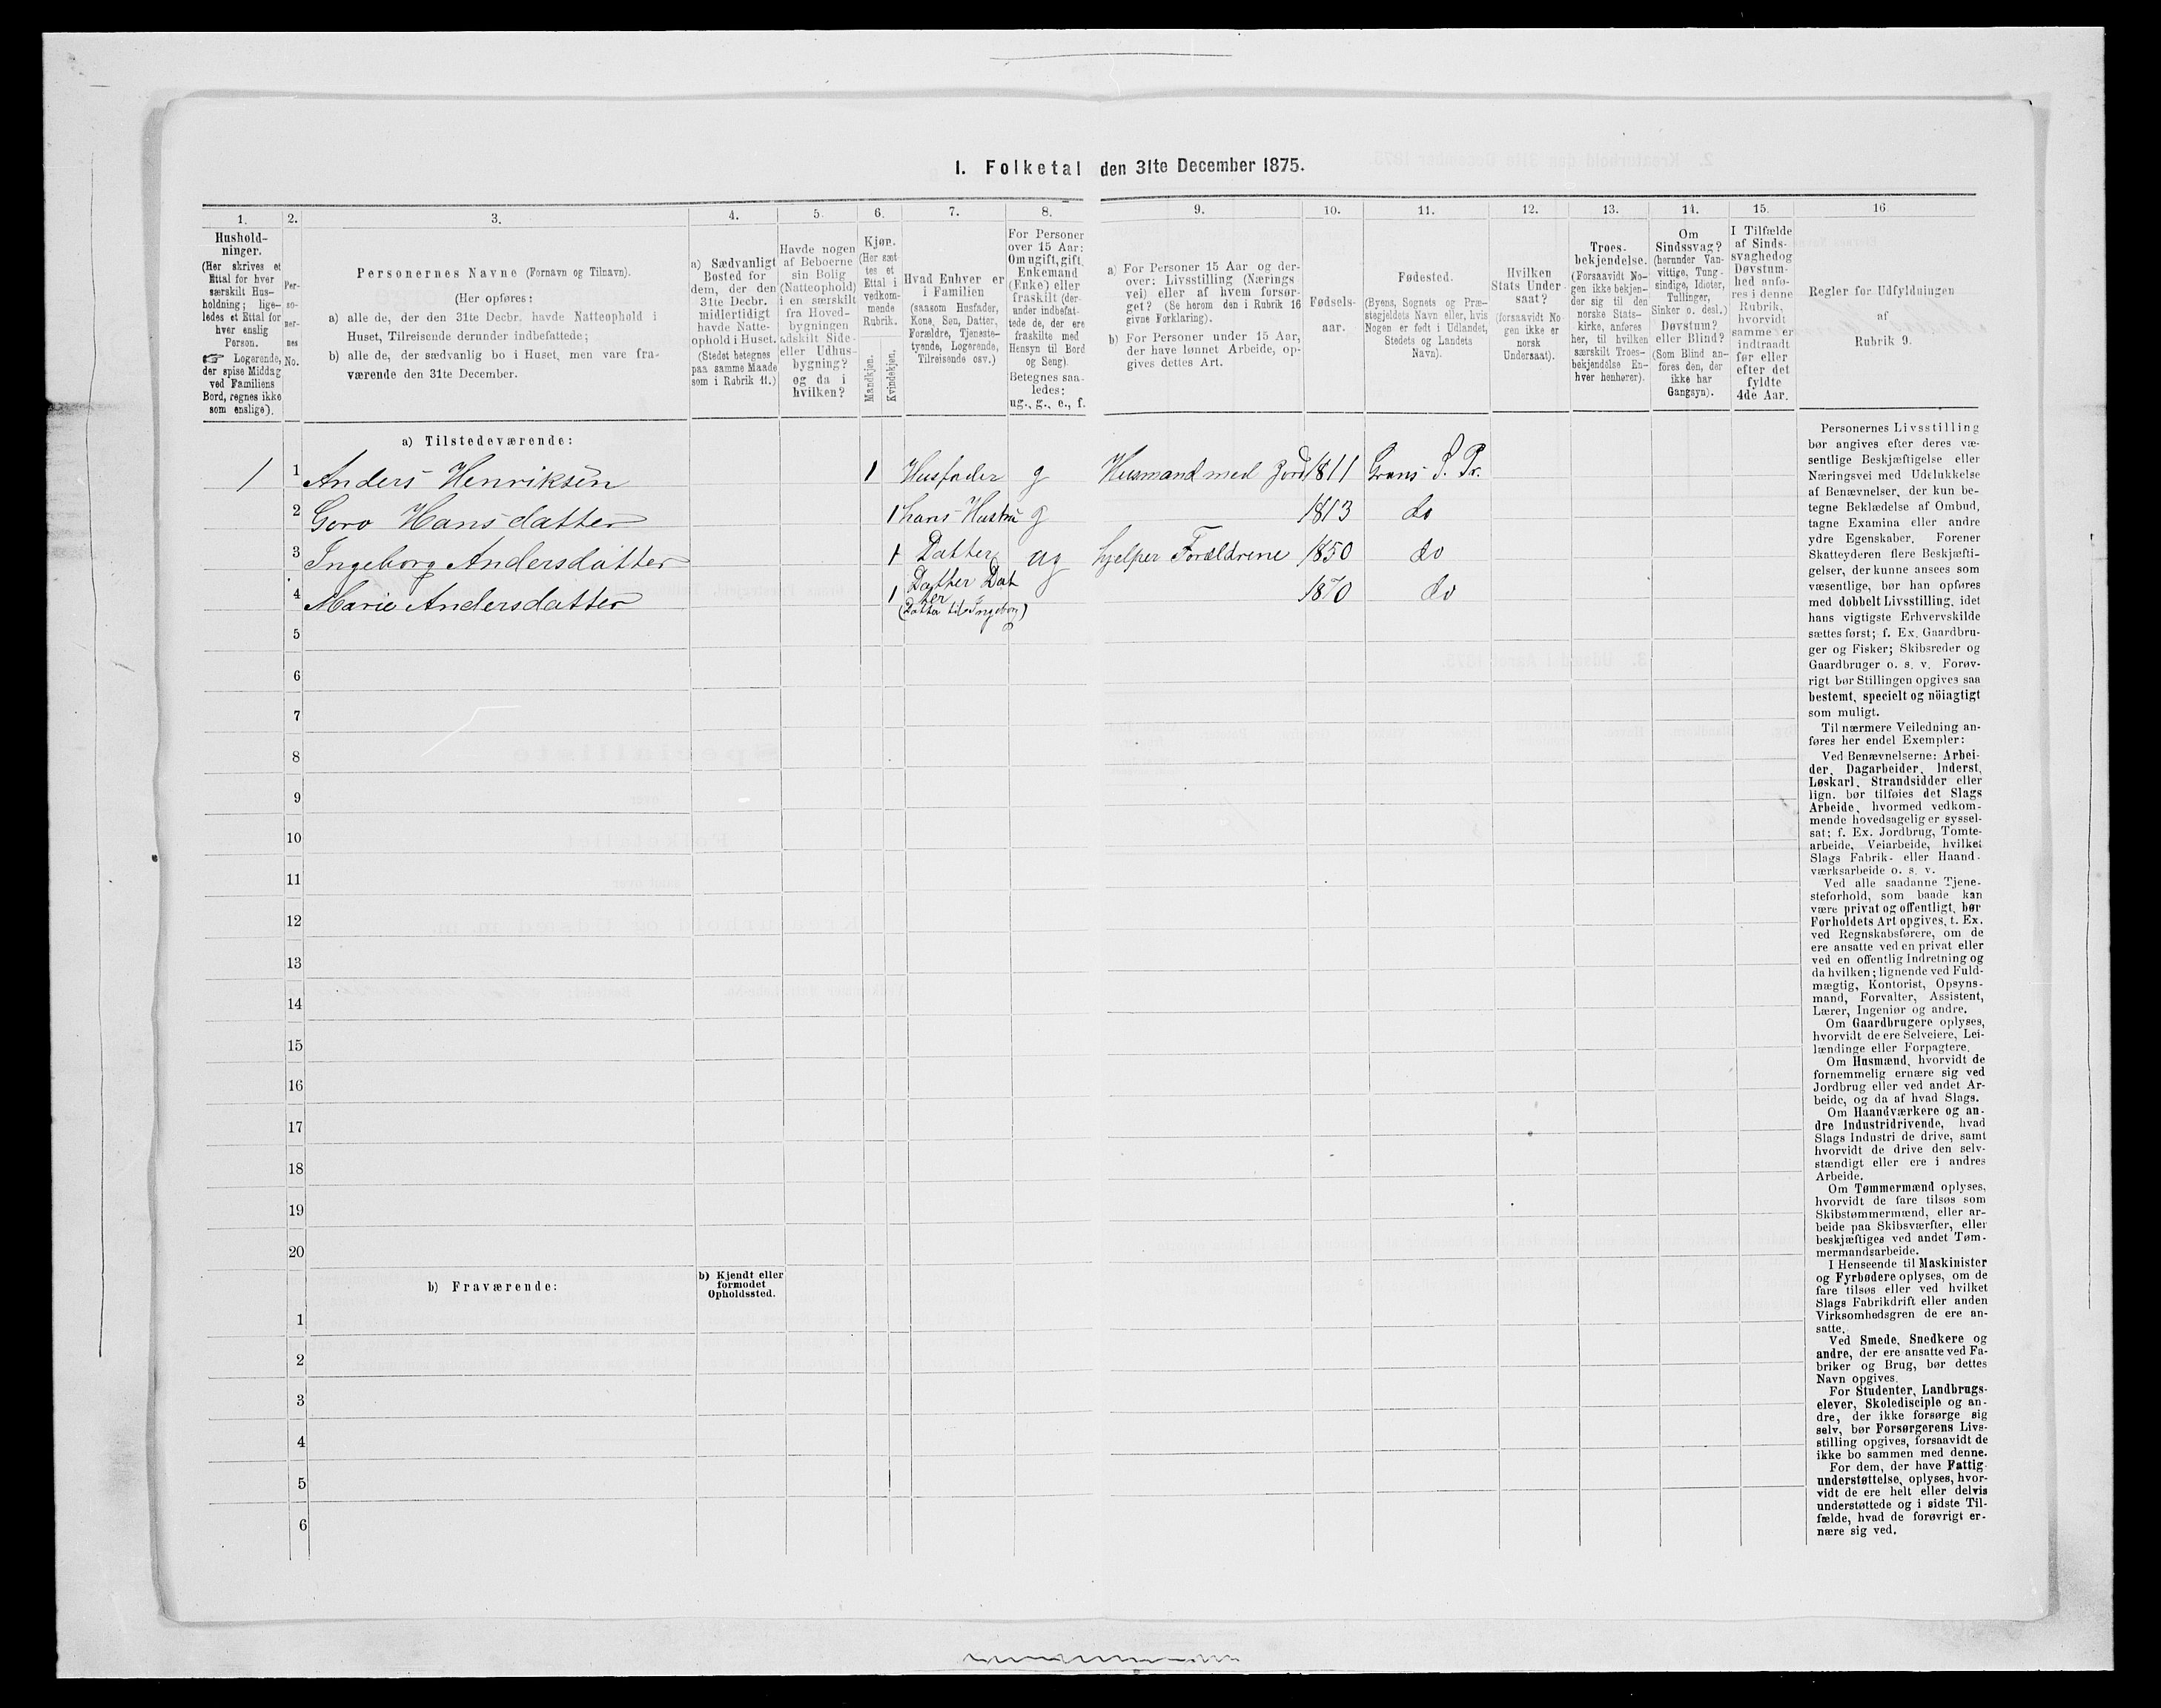 1. Folketal den 31te December 1875.
1.
Hushold-
ninger.
(Her skrives et
Ettal for hver
særskilt Hus-
holdning; lige-
ledes et Ettal for
hver enslig
Person.
☞ Logerende,
der spise Middag
ved Familiens
Bord, regnes ikke
som enslige).
2.
Per-
so-
ner-
nes
No.
3.
Personernes Navne (Fornavn og Tilnavn).
(Her opføres:
a) alle de, der den 31te Decbr. havde Natteophold i
Huset, Tilreisende derunder indbefattede;
b) alle de, der sædvanlig bo i Huset, men vare fra-
værende den 31te December.
4.
a) Sædvanligt
Bosted for
dem, der den
31te Decbr.
midlertidigt
havde Natte-
ophold i Huset.
(Stedet betegnes
paa samme Maade
som i Rubrik 11.)
5.
Havde nogen
af Beboerne
sin Bolig
(Natteophold)
i en særskilt
fra Hoved-
bygningen
adskilt Side-
eller Udhus-
bygning?
og da i
hvilken?
6.
Kjøn.
(Her sæt-
tes et
Ettal i
vedkom-
mende
Rubrik.
Mandkjøn.
Kvindekjøn.
7.
Hvad Enhver er
i Familien
(saasom Husfader,
Kone, Søn, Datter,
Forældre, Tjeneste-
tyende, Logerende,
Tilreisende osv.)
8.
For Personer
over 15 Aar:
Om ugift, gift,
Enkemand
(Enke) eller
fraskilt (der-
under indbefat-
tede de, der ere
fraskilte med
Hensyn til Bord
og Seng).
Betegnes saa-
ledes:
ug., g., e., f.
9.
a) For Personer 15 Aar og der-
over: Livsstilling (Nærings-
vei) eller af hvem forsør-
get? (Se herom den i Rubrik 16
givne Forklaring).
b) For Personer under 15 Aar,
der have lønnet Arbeide, op-
gives dettes Art.
10.
Fødsels-
aar.
11.
Fødested.
(Byens, Sognets og Præ-
stegjeldets Navn eller, hvis
Nogen er født i Udlandet,
Stedets og Landets
Navn).
12.
Hvilken
Stats Under-
saat?
(forsaavidt No-
gen ikke er
norsk
Undersaat).
13.
Troes-
bekjendelse.
(Forsaavidt No-
gen ikke bekjen-
der sig til den
norske Stats-
kirke, anføres
her, til hvilken
særskilt Troes-
bekjendelse En-
hver henhører).
14.
Om
Sindssvag?
(herunder Van-
vittige, Tung-
sindige, Idioter,
Tullinger,
Sinker o. desl.)
Døvstum?
eller Blind?
(Som Blind an-
føres den, der
ikke har
Gangsyn).
15.
I Tilfælde
af Sinds-
svaghed og
Døvstum-
hed anfø-
res i denne
Rubrik,
hvorvidt
samme er
indtraadt
før eller
efter det
fyldte
4de Aar.
16
Regler for Udfyldningen
af
Rubrik 9.
a) Tilstedeværende:
1 1 Anders Henriksen 1 Husfader g Husmand med Jord 1811 Grans S. Pr.
2 Goro Hansdatter 1 hans Hustru g 1813 do
3 Ingeborg Andersdatter 1 Datter ug hjelper Forældrene 1850 do
4 Marie Andersdatter 1 Datter Dat
ter 1870 do
(Datter til Ingeborg)
5
6
7
8
9
10
11
12
13
14
15
16
17
18
19
20
b) Fraværende:
b) Kjendt eller
formodet
Opholdssted.
1
2
3
4
5
6
Personernes Livsstilling
bør angives efter deres væ-
sentlige Beskjæftigelse eller
Næringsvei med Udelukkelse
af Benævnelser, der kun be-
tegne Beklædelse af Ombud,
tagne Examina eller andre
ydre Egenskaber. Forener
Skatteyderen flere Beskjæfti-
gelser, der kunne ansees som
væsentlige, bør han opføres
med dobbelt Livsstilling, idet
hans vigtigste Erhvervskilde
sættes først; f. Ex. Gaardbru-
ger og Fisker; Skibsreder og
Gaardbruger o. s. v. Forøv-
rigt bør Stillingen opgives saa
bestemt, specielt og nöiagtigt
som muligt.
Til nærmere Veiledning an-
føres her endel Exempler:
Ved Benævnelserne: Arbei-
der, Dagarbeider, Inderst,
Løskarl, Strandsidder eller
lign. bør tilføies det Slags
Arbeide, hvormed vedkom-
mende hovedsagelig er syssel-
sat; f. Ex. Jordbrug, Tomte-
arbeide, Veiarbeide, hvilket
Slags Fabrik- eller Haand-
værksarbeide o. s. v.
Ved alle saadanne Tjene-
steforhold, som baade kan
være privat og offentligt, bør
Forholdets Art opgives, t. Ex.
ved Regnskabsførere, om de
ere ansatte ved en privat eller
ved en offentlig Indretning og
da hvilken; lignende ved Fuld-
mægtig, Kontorist, Opsyns-
mand, Forvalter, Assistent,
Lærer, Ingeniør og andre.
Om Gaardbrugere oplyses,
hvorvidt de ere Selveiere, Lei-
lændinge eller Forpagtere.
Om Husmænd, hvorvidt de
fornemmelig ernære sig ved
Jordbrug eller ved andet Ar-
beide, og da af hvad Slags.
Om Haandværkere og an-
dre Industridrivende, hvad
Slags Industri de drive, samt
hvorvidt de drive den selv-
stændigt eller ere i andres
Arbeide.
Om Tømmermænd oplyses,
hvorvidt de fare tilsøs som
Skibstømmermænd, eller ar-
beide paa Skibsværfter, eller
beskjæftiges ved andet Tøm-
mermandsarbeide.
I Henseende til Maskinister
og Fyrbødere oplyses, om de
fare tilsøs eller ved hvilket
Slags Fabrikdrift eller anden
Virksomhedsgren de ere an-
satte.
Ved Smede, Snedkere og
andre, der ere ansatte ved Fa-
briker og Brug, bør dettes
Navn opgives.
For Studenter, Landbrugs-
elever, Skoledisciple og an-
dre, der ikke forsørge sig
selv, bør Forsørgerens Livs-
stilling opgives, forsaavidt de
ikke bo sammen med denne.
For dem, der have Fattig-
understøttelse, oplyses, hvor-
vidt de ere helt eller delvis
understøttede og i sidste Til-
fælde, hvad de forøvrigt er-
nære sig ved.